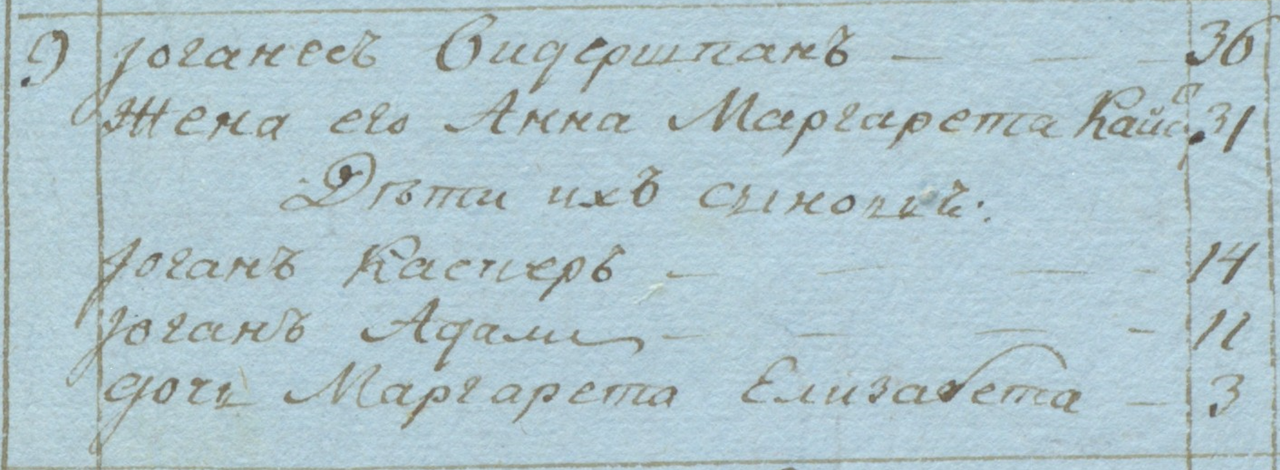 9 Јоганесъ Видершпанъ — — — 36
Жена его Анна Маргарета 31
Дѣти ихъ сыновья:
Јоганъ Касперъ — — — — 14
Јоганъ Адамъ — — — — 11
дочь Маргарета Елизабета — 3